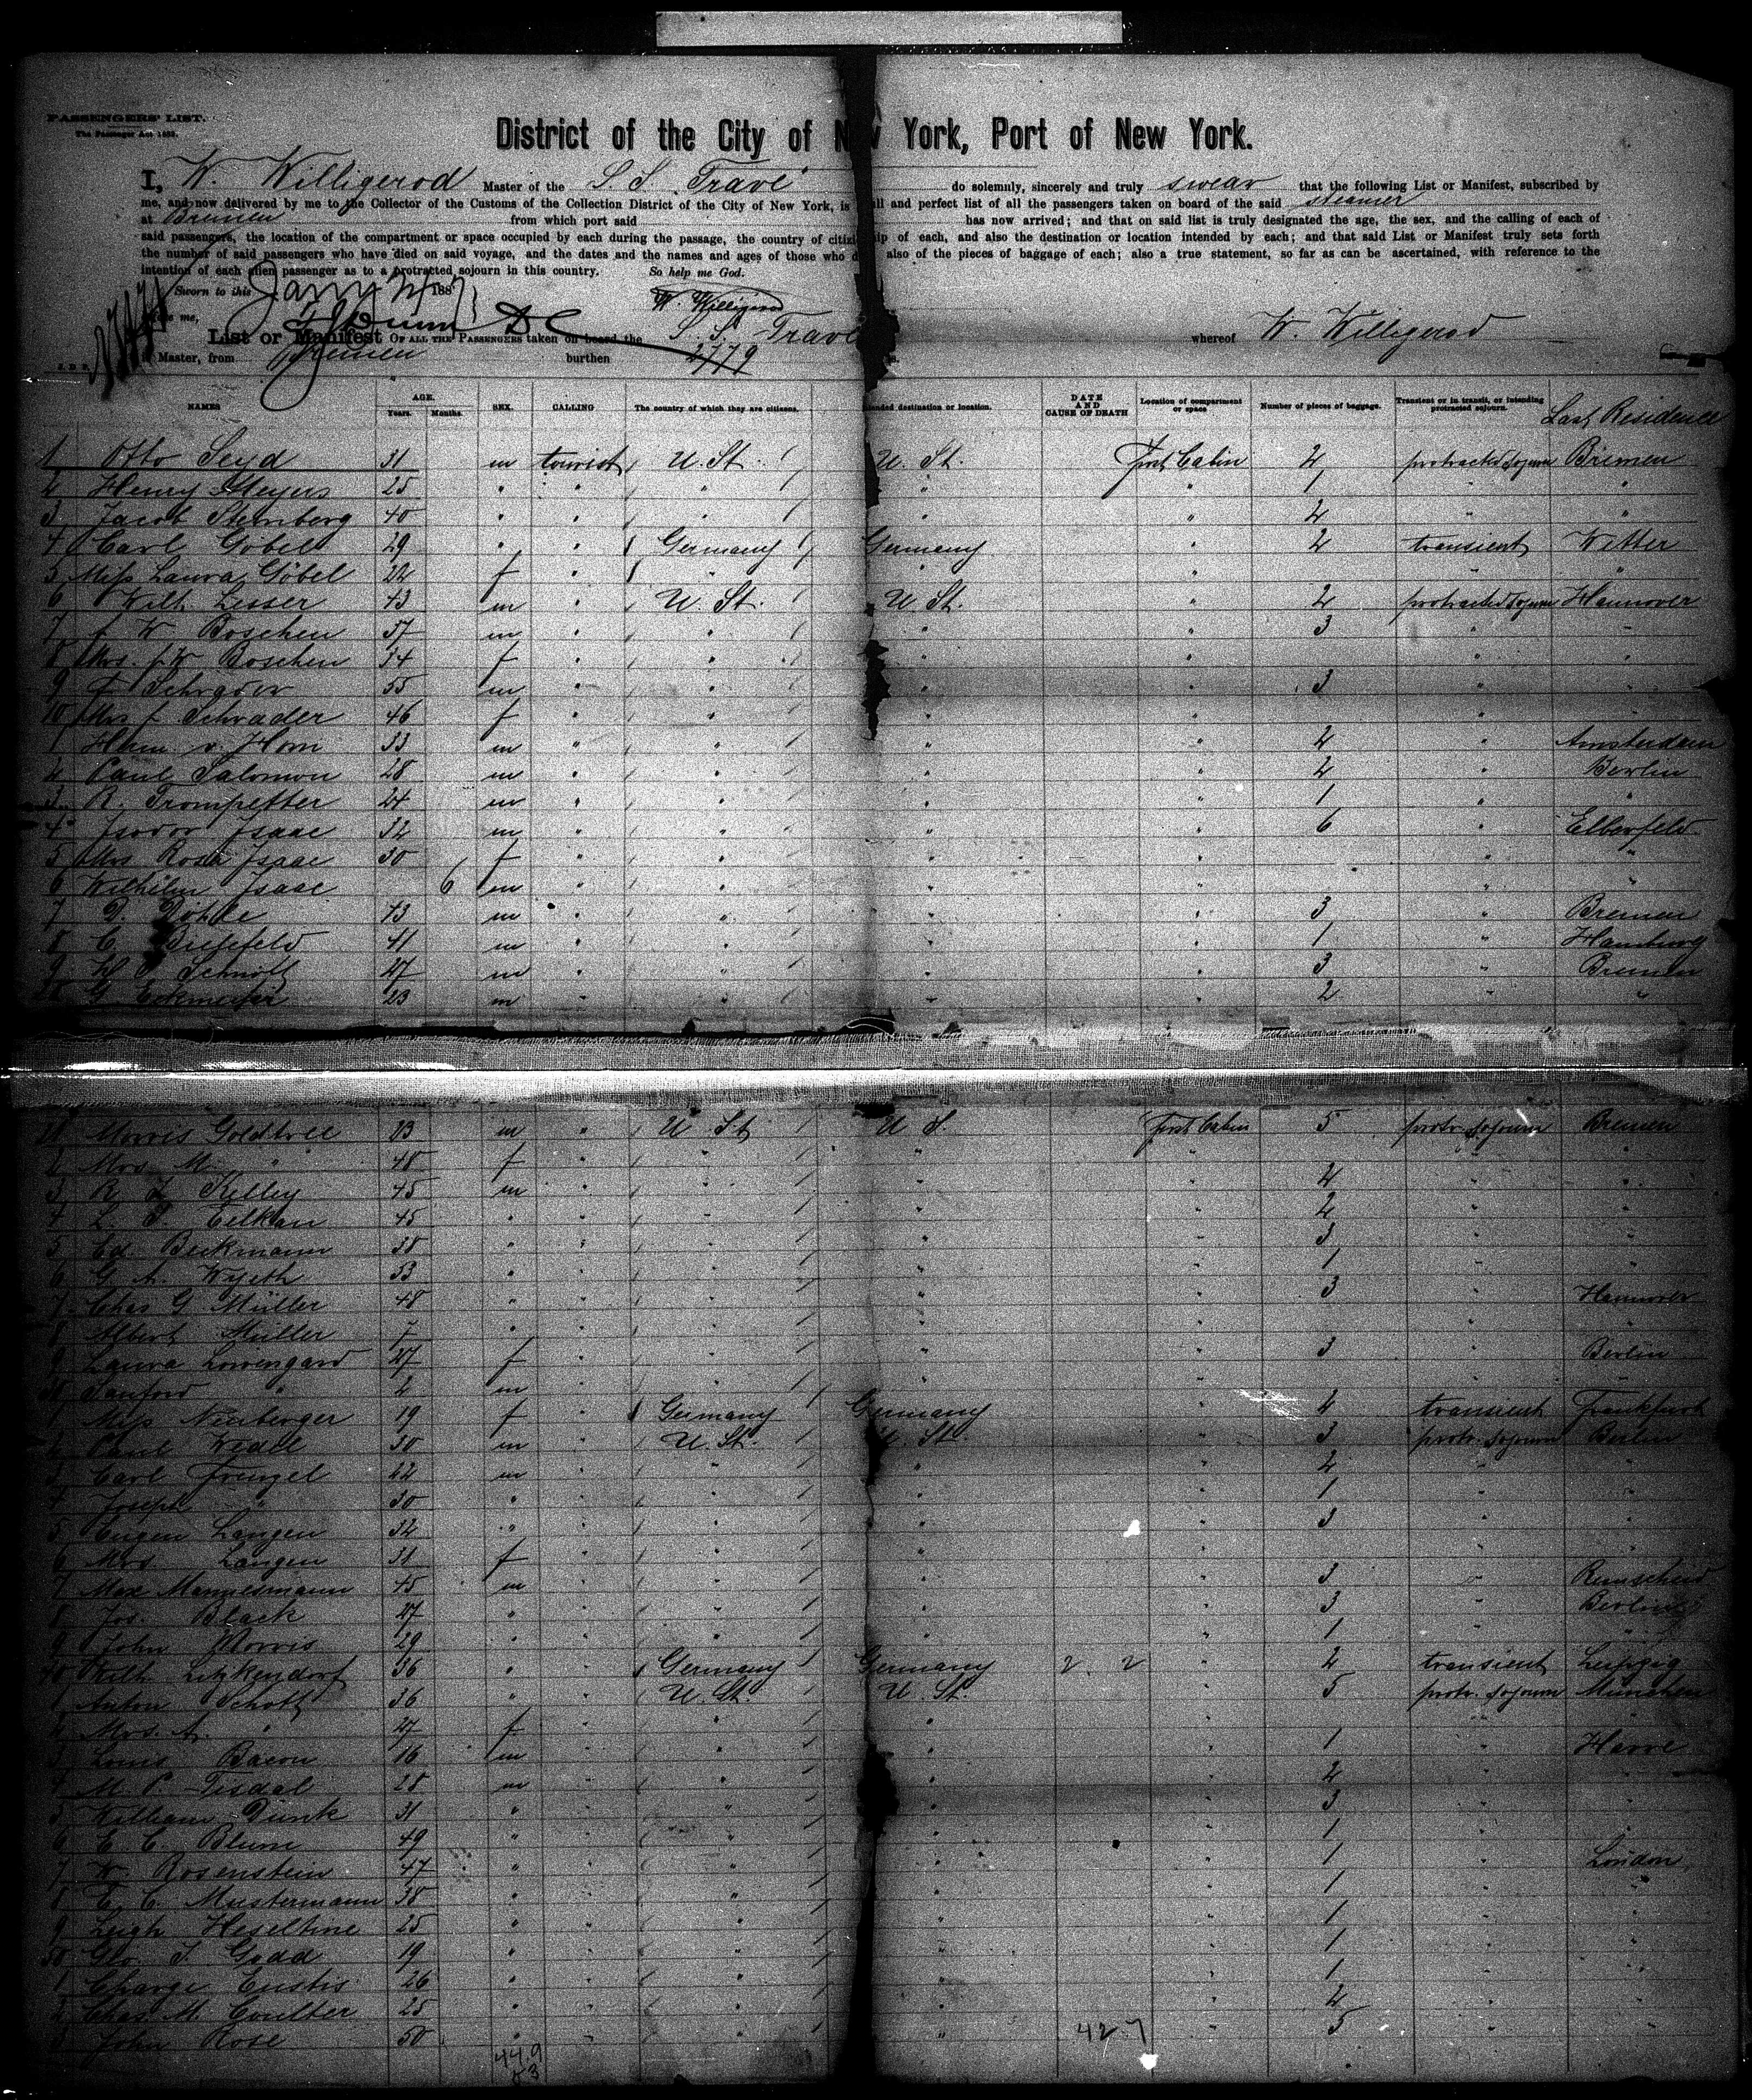 PASSENGERS' LIST.
The Passenger Act 1882.
District of the City of New York, Port of New York.
I, W. Willigerod Master of the S. S. Trave do solemnly, sincerely and truly swear that the following List or Manifest, subscribed by
me, and now delivered by me to the Collector of the Customs of the Collection District of the City of New York, is full and perfect list of all the passengers taken on board of the said steamer
at Bremen from which port said has now arrived; and that on said list is truly designated the age, the sex, and the calling of each of
said passengers, the location of the compartment or space occupied by each during the passage, the country of citizenship of each, and also the destination or location intended by each; and that said List or Manifest truly sets forth
the number of said passengers who have died on said voyage, and the dates and the names and ages of those who died also of the pieces of baggage of each; also a true statement, so far as can be ascertained, with reference to the
intention of each alien passenger as to a protracted sojourn in this country. So help me God.
Sworn to this 188
W. Willigerod
me,
List or Manifest OF ALL THE PASSENGERS taken on board the S. S. Trave whereof W. Willigerod
Master, from Bremen burthen 2779
NAMES AGE. Years. Months. SEX. CALLING The country of which they are citizens. Intended destination or location. DATE AND CAUSE OF DEATH Location of compartment or space Number of pieces of baggage. Transient or in transit, or intending protracted sojourn. Last Residence
1 Otto Seyd 31 m tourist U. St. U. St. first Cabin 2 protracted sojourn Bremen
2 Henry Meyers 25 " " " " " 1 " "
3 Jacob Sternberg 40 " " " " " 2 " "
4 Carl Göbel 29 " " Germany Germany " 2 transient Wetter
5 Miss Laura Göbel 22 f " " " " " "
6 Wilh. Lesser 43 m " U. St. U. St. " 2 protracted sojourn Hannover
7 f W Boschen 37 m " " " " 3 " "
8 Mrs. f W Boschen 34 f " " " " " "
9 f Schrader 55 m " " " " 3 " "
10 Mrs f Schrader 46 f " " " " " "
1 Ham v. Horn 33 m " " " " 2 " Amsterdam
2 Paul Salomon 28 m " " " " 2 " Berlin
3 R. Trompetter 24 m " " " " 1 " "
4 Isodor Isaac 32 m " " " " 6 " Elberfeld
5 Mrs Rosa Isaac 30 f " " " " " "
6 Wilhelm Isaac 6 m " " " " " "
7 43 m " " " " 3 " Bremen
8 C. Bielefeld 41 m " " " " 1 " Hamburg
9 Schmoll 27 m " " " " 3 " Bremen
G Eckmeier 23 m " " " " 2 " "
21 Morris Goldtree 23 m " U St U S first Cabin 5 protr. sojourn Bremen
2 Mrs M. " 48 f " " " " " "
3 R L Kelley 45 m " " " " 4 " "
4 L. T. Eelkan 45 " " " " " 2 " "
5 Ed. Beckmann 38 " " " " " 3 " "
6 G A. Wyeth 53 " " " " " 1 " "
7 Chas G Müller 48 " " " " " 3 " Hannover
8 Albert Müller 7 " " " " " " "
9 Laura Löwengard 27 f " " " " 3 " Berlin
30 Sanford " 2 m " " " " " "
1 Miss Neuberger 19 f " Germany Germany " 4 transient Frankfurt
2 Paul Wedel 30 m " U. St. U. St. " 3 protr. sojourn Berlin
3 Carl Frenzel 42 m " " " " 2 " "
4 Joseph " 30 " " " " " 1 " "
5 Eugen Langen 32 " " " " " 3 " "
6 Mrs Langen 31 f " " " " " "
7 Max Mannesmann 45 m " " " " 3 " Remscheid
8 Jos. Black 27 " " " " " 3 " Berlin
9 John Morris 29 " " " " " 1 " "
40 Wilh Litzkendorf 36 " " Germany Germany 2. 2 " 2 transient Leipzig
1 Anton Schott 36 " " U. St. U. St. " 5 protr. sojourn München
2 Mrs. A. " 27 f " " " " " "
3 Louis Bacon 16 m " " " " 1 " Havre
4 M. P. Tisdal 28 m " " " " 2 " "
5 William Dunk 31 " " " " " 3 " "
6 E. C. Blum 49 " " " " " 1 " "
7 W. Rosenstein 47 " " " " " 1 " London
8 E. C. Mustermann 38 " " " " " 1 " "
9 Leigh Heseltine 25 " " " " " 1 " "
50 Geo. T. Gadd 19 " " " " " 1 " "
1 Eustis 26 " " " " " 1 " "
2 Chas. M. Coulter 25 " " " " " 2 " "
3 John Rose 50 " " " " 42.7 " 5 " "
44.9
53